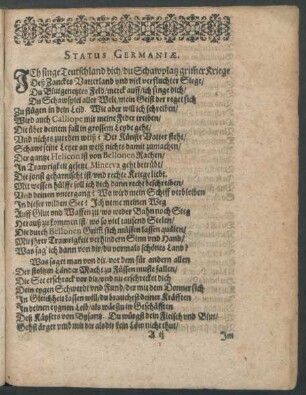 STATUS GERMANIÆ.
ICh singe Teutschland dich/ du Schawplatz grimer Kriege
Deß Zanckes Vatterland und viel verfluchter Siege/
Du Blutgenetztes Feld/ merck auff/ ich singe dich/
Du Schawspiel aller Welt/ mein Geist der reget sich
Zu klagen in dein Leid. Wie aber will ich schreiben/
Wird auch Calliope mit meine Feder treiben/
Die über deinem fall in grossem Leyde geht/
Und nichts zureden weiß? Der Künste Vatter steht/
Schawt seine Leyer an weiß nichts damit zumachen/
Der gantze Helicon ist von Bellonen Rachen/
In Trawrigkeit gesetzt Minerva geht betrübt
Die sonst geharnischt ist/ und rechte Kriege liebt.
Mit wessen hülffe soll ich dich dann recht beschreiben/
Und deinen untergang? Wo wird mein Schiff verbleiben
In dieser wilden See? Ich neme meinen Weg
Auff Glut und Waffen zu/ wo weder Bahn noch Steg
Herauß zukommen ist/ wo so viel tausend Seelen/
Die durch Bellonen Grimm sich müssen lassen quälen/
Mit ihrer Trawrigkeit verhindern Sinn und Hand/
Was sag' ich dann von dir/ du vormals schönes Land?
Was saget man von dir/ vor dem für andern allen
Der stoltzen Länder Macht zu Füssen muste fallen/
Die See erschrack vor dir/ und die erschrecket dich
Dein eygen Schwerdt und Fund/ der mit dem Donner sich
In Gleichheit lassen will/ du brauchest deiner Kräfften
In deinen eygnen Leib/ als wärestu in Geschäfften
Deß Käysers von Bysantz. Du würgst dein Fleisch und Blut/
Gehst ärger und mit dir als dir kein Löw nicht thut/
A ij
Im